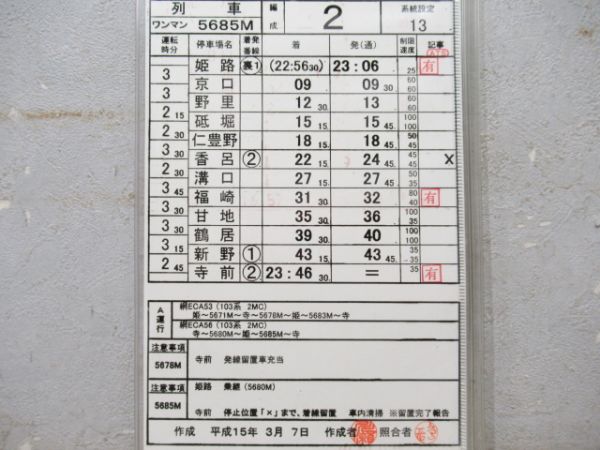 列　車 編成 2 系統設定
ワンマン 5685M 13
運転時分 停車場名 着発番線 着 発(通) 制限速度 記事
姫路 裏1 (22:56 30) 23:06 25 有
3
京口 09 09 30. 60 60
3
野里 12 30. 13 60 60
2 15
砥堀 15 15. 15 45. 100 100
2 30
仁豊野 18 15. 18 45. 50 45
3 30
香呂 ② 22 15. 24 45. 45 45 ×
2 30
溝口 27 15. 27 45. 50 35
3 45
福崎 31 30. 32 80 40 有
3
甘地 35 30. 36 100 35
3 30
鶴居 39 30. 40 100 100
3 15
新野 ① 43 15. 43 45. 45 35
2 45
寺前 ② 23:46 30. = 35 有
A運行
網ECA53 (103系 2MC)
姫～5671M～寺～5678M～姫～5683M～寺
網ECA56 (103系 2MC)
寺～5680M～姫～5685M～寺
注意事項 5678M 寺前 発線留置車充当
注意事項 5685M 姫路 乗継 (5680M)
寺前 停止位置「×」まで、着線留置 車内清掃 ※留置完了報告
作成 平成15年 3月 7日 作成者 照合者